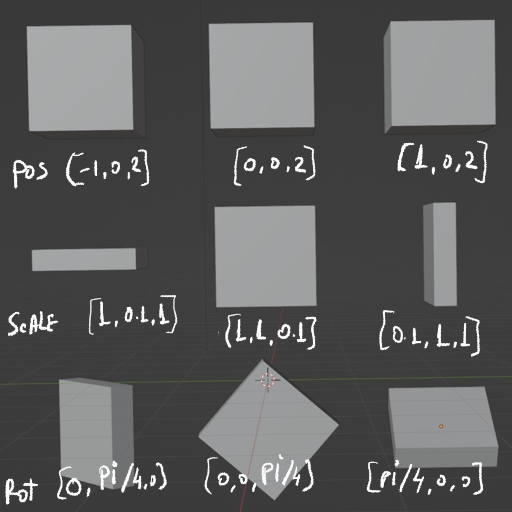 pos (-1,0,2] [0,0,2] [1,0,2]
SCALE [1,0.1,1] [1,1,0.1] [0.1,1,1]
Rot [0,Pi/4,0) [0,0,Pi/4) [Pi/4,0,0]